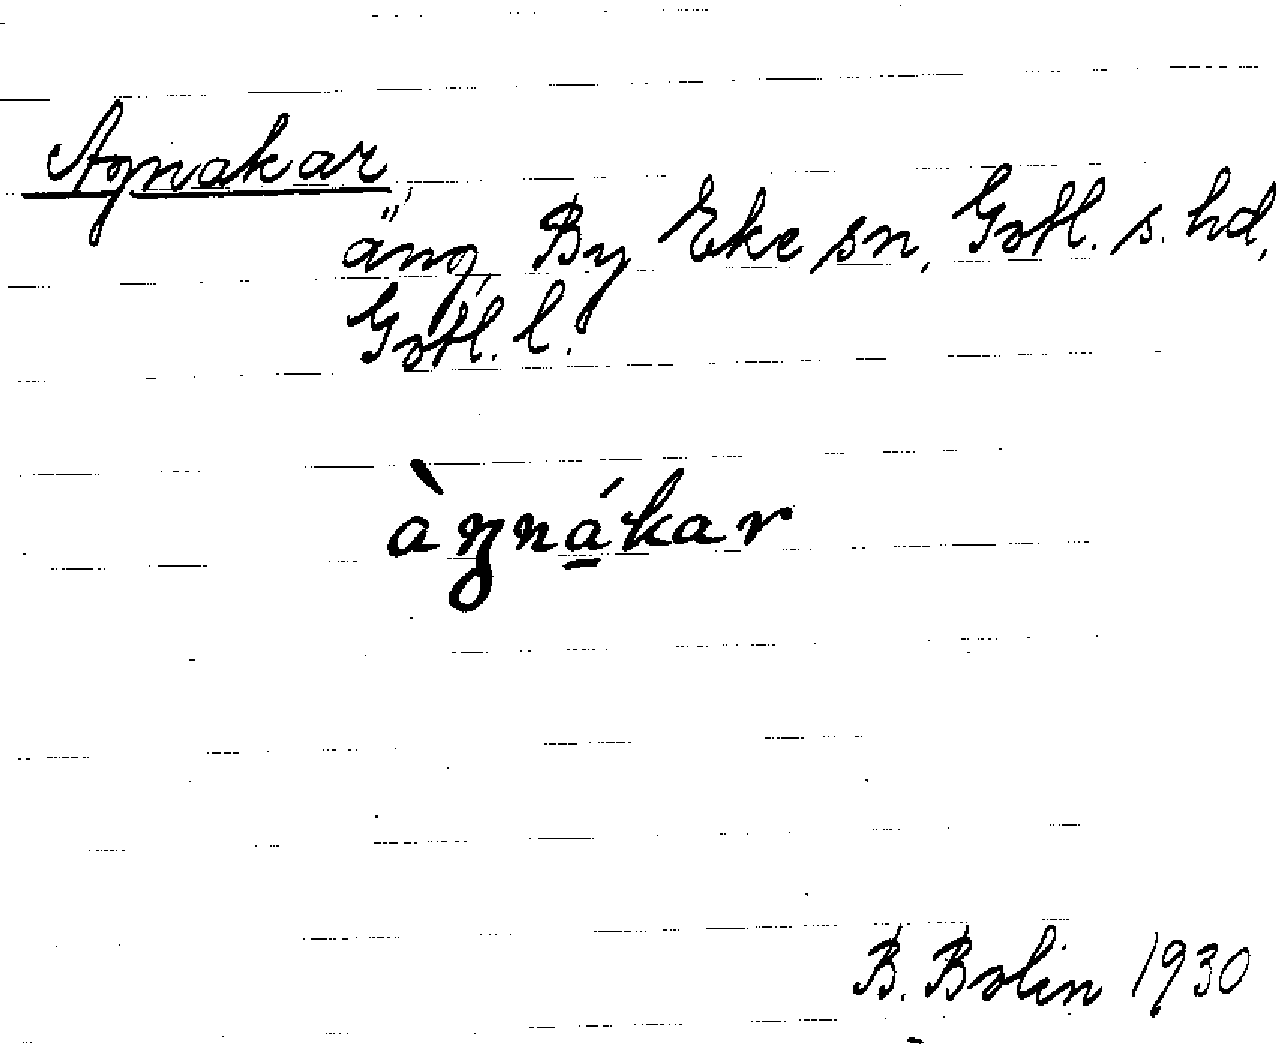 Agnakar
äng, By Eke sn, Gotl. s. hd,
Gotl. l.
àgnákar
B. Bolin 1930